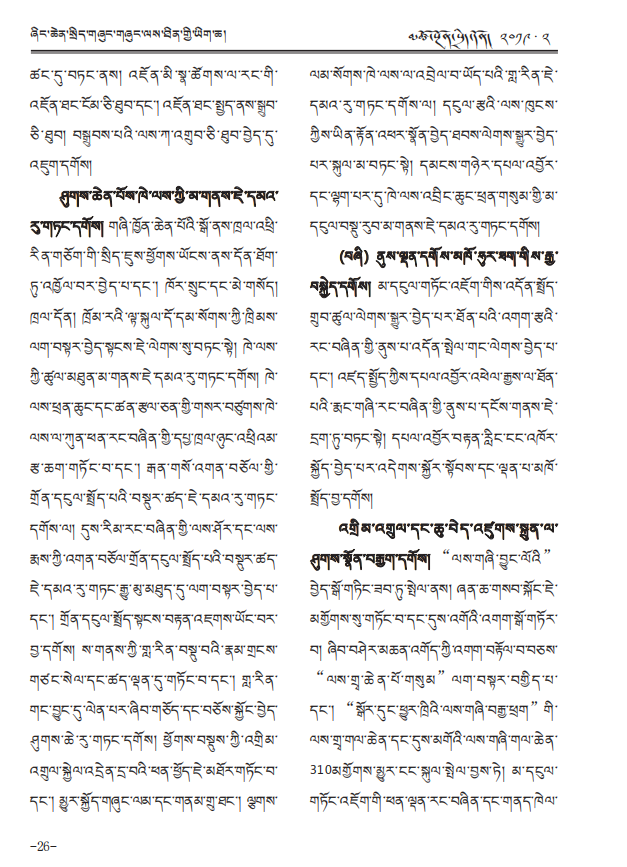 ཞིང་ཆེན་སྲིད་གཞུང་གཞུང་ལས་ཐིན་གྱི་ཡིག་ཆ།
༢༠༡༩ · ༢
ཚང་དུ་བཏང་ནས། འཛོན་མི་སྣ་ཚོགས་ལ་རང་གི་
འཛོན་ཐང་ངོམ་ཅི་ཐུབ་དང་། འཛོན་ཐང་སྤྱད་ནས་སྒྲུབ་
ཅི་ཐུབ། བསྒྲུབས་པའི་ལས་ཀ་འགྲུབ་ཅི་ཐུབ་བྱེད་དུ་
འཇུག་དགོས།
ཤུགས་ཆེན་པོས་ཁེ་ལས་ཀྱི་མ་གནས་ཇེ་དམའ་
རུ་གཏང་དགོས། གཞི་ཁྱོན་ཆེན་པོའི་སྒོ་ནས་ཁྲལ་འཕྲི་
རིན་གཅོག་གི་སྲིད་ཇུས་ཕྱོགས་ཡོངས་ནས་དོན་ཐོག་
ཏུ་འཁྱོལ་བར་བྱེད་པ་དང་། ཁོར་སྲུང་དང་མེ་གསོད།
ཁྲལ་དོན། ཁྲོམ་རའི་ལྟ་སྐུལ་དོ་དམ་སོགས་ཀྱི་ཁྲིམས་
ལག་བསྟར་བྱེད་སྟངས་ཇེ་ལེགས་སུ་བཏང་སྟེ། ཁེ་ལས་
ཀྱི་ཚུལ་མཐུན་མ་གནས་ཇེ་དམའ་རུ་གཏང་དགོས། ཁེ་
ལས་ཕྲན་ཆུང་དང་ཚན་རྩལ་ཅན་གྱི་གསར་བཙུགས་ཁེ་
ལས་ལ་ཀུན་ཕན་རང་བཞིན་གྱི་དཔྱ་ཁྲལ་ཉུང་འཕྲིའམ་
རྩ་ཆག་གཏོང་བ་དང་། རྒན་གསོ་འགན་བཅོལ་གྱི་
གྲོན་དངུལ་སྤྲོད་པའི་བསྡུར་ཚད་ཇེ་དམའ་རུ་གཏང་
དགོས་ལ། དུས་རིམ་རང་བཞིན་གྱི་ལས་ཤོར་དང་ལས་
རྨས་ཀྱི་འགན་བཅོལ་གྲོན་དངུལ་སྤྲོད་པའི་བསྡུར་ཚད་
ཇེ་དམའ་རུ་གཏང་རྒྱུ་མུ་མཐུད་དུ་ལག་བསྟར་བྱེད་པ་
དང་། གྲོན་དངུལ་སྤྲོད་སྟངས་བརྟན་འཇགས་ཡོང་བར་
བྱ་དགོས། ས་གནས་ཀྱི་གླ་རིན་བསྡུ་བའི་རྣམ་གྲངས་
གཙང་སེལ་དང་ཚད་ལྡན་དུ་གཏོང་བ་དང་། གླ་རིན་
གང་བྱུང་དུ་ལེན་པར་ཞིབ་གཅོད་དང་བཅོས་སྐྱོང་བྱེད་
ཤུགས་ཆེ་རུ་གཏང་དགོས། ཕྱོགས་བསྡུས་ཀྱི་འགྲིམ་
འགྲུལ་སྐྱེལ་འདྲེན་དྲ་བའི་ཕན་ཕྱོད་ཇེ་མཐོར་གཏོང་བ་
དང་། མྱུར་སྐྱོད་གཞུང་ལམ་དང་གནམ་གྲུ་ཐང་། ལྕགས་
ལམ་སོགས་ཁེ་ལས་ལ་འབྲེལ་བ་ཡོད་པའི་གླ་རིན་ཇེ་
དམའ་རུ་གཏང་དགོས་ལ། དངུལ་རྩའི་ལས་ཁུངས་
ཀྱིས་ཡིན་རྟོན་འཕར་སྣོན་བྱེད་ཐབས་ལེགས་སྒྱུར་བྱེད་
པར་སྐུལ་མ་བཏང་སྟེ། དམངས་གཉེར་དཔལ་འབྱོར་
དང་ལྷག་པར་དུ་ཁེ་ལས་འབྲིང་ཆུང་ཕྲན་གསུམ་གྱི་མ་
དངུལ་བསྡུ་རུབ་མ་གནས་ཇེ་དམའ་རུ་གཏང་དགོས།
(བཞི) ནུས་ལྡན་དགོས་མཁོ་ཧུར་ཐག་གིས་རྒྱ་
བསྐྱེད་དགོས། མ་དངུལ་གཏོང་འཇོག་གིས་འདོན་སྤྲོད་
གྲུབ་ཚུལ་ལེགས་སྒྱུར་བྱེད་པར་ཐོན་པའི་འགག་རྩའི་
རང་བཞིན་གྱི་ནུས་པ་འདོན་སྤེལ་གང་ལེགས་བྱེད་པ་
དང་། འཛད་སྤྱོད་ཀྱིས་དཔལ་འབྱོར་འཕེལ་རྒྱས་ལ་ཐོན་
པའི་རྨང་གཞི་རང་བཞིན་གྱི་ནུས་པ་དངོས་གནས་ཇེ་
དྲག་ཏུ་བཏང་སྟེ། དཔལ་འབྱོར་བརྟན་རླིང་ངང་འཁོར་
སྐྱོད་བྱེད་པར་འདེགས་སྐྱོར་སྟོབས་དང་ལྡན་པ་མཁོ་
སྤྲོད་བྱ་དགོས།
འགྲིམ་འགྲུལ་དང་ཆུ་བེད་འཛུགས་སྐྲུན་ལ་
ཤུགས་སྣོན་བརྒྱག་དགོས། “ལས་གཞི་བྱུང་ལོའི”
བྱེད་སྒོ་གཏིང་ཟབ་ཏུ་སྤེལ་ནས། ཞན་ཆ་གསབ་སྐོང་ཇེ་
མགྱོགས་སུ་གཏོང་བ་དང་དུས་འགོའི་འགག་སྒོ་གཏོར་
བ། ཞིབ་བཤེར་མཆན་འགོད་ཀྱི་འགག་བརྟོལ་བ་བཅས་
“ལས་གྲྭ་ཆེན་པོ་གསུམ” ལག་བསྟར་བགྱིད་པ་
དང་། “སྒོར་དུང་ཕྱུར་ཁྲིའི་ལས་གཞི་བརྒྱ་ཕྲག” གི་
ལས་གྲྭ་གལ་ཆེན་དང་དུས་མགོའི་ལས་གཞི་གལ་ཆེན་
310མགྱོགས་མྱུར་ངང་སྐུལ་སྤེལ་བྱས་ཏེ། མ་དངུལ་
གཏོང་འཇོག་གི་ཕན་ལྡན་རང་བཞིན་དང་གནད་ཁེལ་
-26-